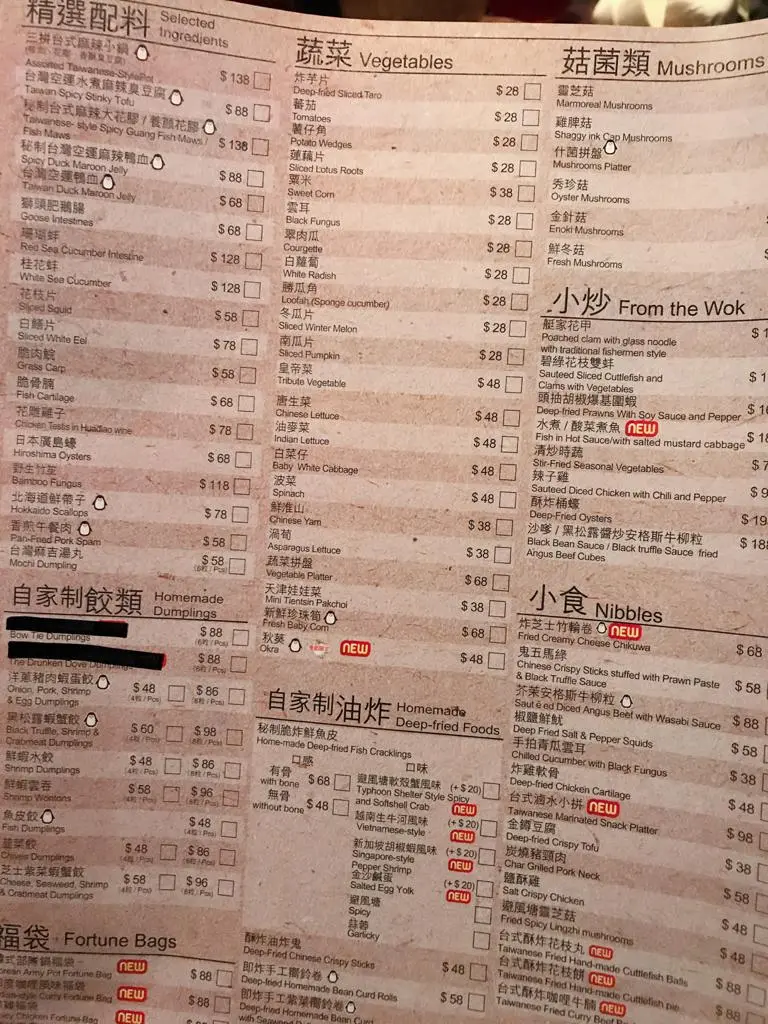 精選配料 Selected Ingredients
三拼台式麻辣小鍋
Assorted Taiwanese-StylePot $ 138
台灣空運水煮麻辣臭豆腐
Taiwan Spicy Stinky Tofu $ 88
秘制台式麻辣大花膠 / 養顏花膠
Taiwanese- style Spicy Guang Fish Maws /
Fish Maws $ 138
秘制台灣空運麻辣鴨血
Spicy Duck Maroon Jelly $ 88
台灣空運鴨血
Taiwan Duck Maroon Jelly $ 68
獅頭肥鵝腸
Goose Intestines $ 68
珊瑚蚌
Red Sea Cucumber Intestine $ 128
桂花蚌
White Sea Cucumber $ 128
花枝片
Sliced Squid $ 58
白鱔片
Sliced White Eel $ 78
脆肉鯇
Grass Carp $ 58
脆骨腩
Fish Cartilage $ 68
花雕雞子
Chicken Testis in Huadiao wine $ 78
日本廣島蠔
Hiroshima Oysters $ 68
野生竹笙
Bamboo Fungus $ 118
北海道鮮帶子
Hokkaido Scallops $ 78
香煎午餐肉
Pan-Fried Pork Spam $ 58
台灣麻吉湯丸
Mochi Dumpling $ 58
(6粒 / Pcs)
自家制餃類 Homemade Dumplings
Bow Tie Dumplings $ 88
(6粒 / Pcs)
The Drunken Dove Dumplings $ 88
(6粒 / Pcs)
洋蔥豬肉蝦蛋餃
Onion, Pork, Shrimp
& Egg Dumplings $ 48 $ 86
(4粒 / Pcs) (8粒 / Pcs)
黑松露蝦蟹餃
Black Truffle, Shrimp &
Crabmeat Dumplings $ 60 $ 98
(4粒 / Pcs) (8粒 / Pcs)
鮮蝦水餃
Shrimp Dumplings $ 48 $ 86
(4粒 / Pcs) (8粒 / Pcs)
鮮蝦雲吞
Shrimp Wontons $ 58 $ 96
(4粒 / Pcs) (8粒 / Pcs)
魚皮餃
Fish Dumplings $ 48
(4粒 / Pcs)
韮菜餃
Chives Dumplings $ 48 $ 86
(4粒 / Pcs) (8粒 / Pcs)
芝士紫菜蝦蟹餃
Cheese, Seaweed, Shrimp
& Crabmeat Dumplings $ 58 $ 96
(4粒 / Pcs) (8粒 / Pcs)
福袋 Fortune Bags
Korean Army Pot Fortune Bag NEW $ 88
Curry Fortune Bag NEW $ 88
Chicken Fortune Bag NEW $ 88
蔬菜 Vegetables
炸芋片
Deep-fried Sliced Taro $ 28
蕃茄
Tomatoes $ 28
薯仔角
Potato Wedges $ 28
蓮藕片
Sliced Lotus Roots $ 28
粟米
Sweet Corn $ 38
雲耳
Black Fungus $ 28
翠肉瓜
Courgette $ 28
白蘿蔔
White Radish $ 28
勝瓜角
Loofah (Sponge cucumber) $ 28
冬瓜片
Sliced Winter Melon $ 28
南瓜片
Sliced Pumpkin $ 28
皇帝菜
Tribute Vegetable $ 48
唐生菜
Chinese Lettuce $ 48
油麥菜
Indian Lettuce $ 48
白菜仔
Baby White Cabbage $ 48
菠菜
Spinach $ 48
鮮淮山
Chinese Yam $ 38
萵荀
Asparagus Lettuce $ 38
蔬菜拼盤
Vegetable Platter $ 68
天津娃娃菜
Mini Tientsin Pakchoi $ 38
新鮮珍珠筍
Fresh Baby Corn $ 68
秋葵
Okra NEW $ 48
自家制油炸 Homemade Deep-fried Foods
秘制脆炸鮮魚皮
Home-made Deep-fried Fish Cracklings
口感 口味
有骨
with bone $ 68
無骨
without bone $ 48
避風塘軟殼蟹風味 (+ $ 20)
Typhoon Shelter Style Spicy
and Softshell Crab NEW
越南生牛河風味 (+ $ 20)
Vietnamese-style NEW
新加坡胡椒蝦風味 (+ $ 20)
Singapore-style
Pepper Shrimp NEW
金沙鹹蛋 (+ $ 20)
Salted Egg Yolk NEW
避風塘
Spicy
蒜蓉
Garlicky
酥炸油炸鬼
Deep-fried Chinese Crispy Sticks $ 48
即炸手工響鈴卷
Deep-fried Homemade Bean Curd Rolls $ 58
即炸手工紫菜響鈴卷
Deep-fried Homemade Bean Curd
菇菌類 Mushrooms
靈芝菇
Marmoreal Mushrooms
雞脾菇
Shaggy ink Cap Mushrooms
什菌拼盤
Mushrooms Platter
秀珍菇
Oyster Mushrooms
金針菇
Enoki Mushrooms
鮮冬菇
Fresh Mushrooms
小炒 From the Wok
艇家花甲
Poached clam with glass noodle
with traditional fishermen style $ 1
碧綠花枝雙蚌
Sauteed Sliced Cuttlefish and
Clams with Vegetables $ 1
頭抽胡椒爆基圍蝦
Deep-fried Prawns With Soy Sauce and Pepper $ 1
水煮 / 酸菜煮魚 NEW
Fish in Hot Sauce/with salted mustard cabbage $ 1
清炒時蔬
Stir-Fried Seasonal Vegetables $ 7
辣子雞
Sauteed Diced Chicken with Chili and Pepper $ 9
酥炸桶蠔
Deep-Fried Oysters $ 19
沙嗲 / 黑松露醬炒安格斯牛柳粒
Black Bean Sauce / Black truffle Sauce fried
Angus Beef Cubes $ 18
小食 Nibbles
炸芝士竹輪卷 NEW
Fried Creamy Cheese Chikuwa $ 68
鬼五馬綠
Chinese Crispy Sticks stuffed with Prawn Paste
& Black Truffle Sauce $ 58
芥茉安格斯牛柳粒
Sauté ed Diced Angus Beef with Wasabi Sauce $ 88
椒鹽鮮魷
Deep Fried Salt & Pepper Squids $ 58
手拍青瓜雲耳
Chilled Cucumber with Black Fungus $ 38
炸雞軟骨
Deep-fried Chicken Cartilage $ 48
台式滷水小拼 NEW
Taiwanese Marinated Snack Platter $ 98
金鐏豆腐
Deep-fried Crispy Tofu $ 38
炭燒豬頸肉
Char Grilled Pork Neck $ 58
鹽酥雞
Salt Crispy Chicken $ 48
避風塘靈芝菇
Fried Spicy Lingzhi mushrooms $ 48
台式酥炸花枝丸 NEW
Taiwanese Fried Hand-made Cuttlefish Balls $ 88
台式酥炸花枝餅 NEW
Taiwanese Fried Hand-made Cuttlefish pie $ 88
台式酥炸咖哩牛腩 NEW
Taiwanese Fried Curry Beef